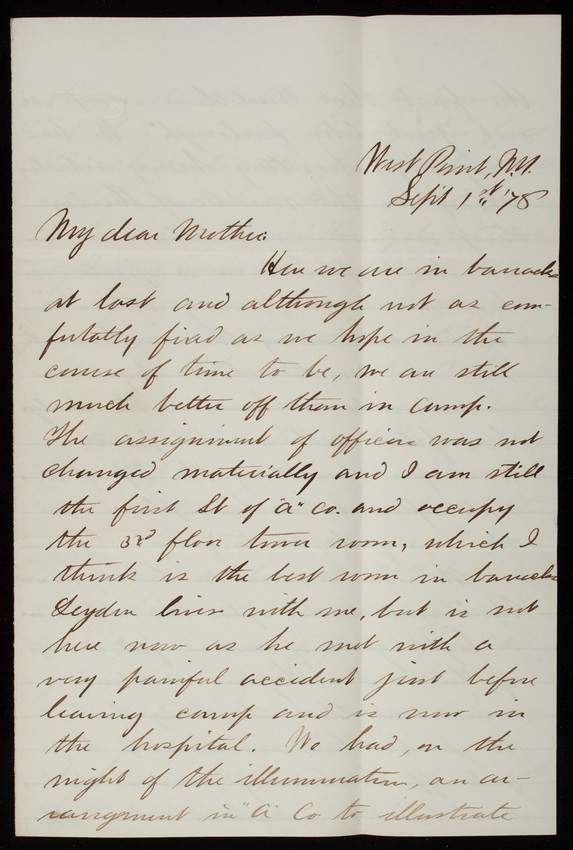 West Point, N.Y.
Sept 1st, '78
My dear Mother:
Here we are in barracks
at last and although not as com-
fortably fixed as we hope in the
course of time to be, we are still
much better off than in camp.
The assignment of officers was not
changed materially and I am still
the first Lt of "A" Co. and occupy
the 3rd floor tower room, which I
think is the best room in barracks
Leyden lives with me, but is not
here now as he met with a
very painful accident just before
leaving camp and is now in
the hospital. We had, on the
night of the illumination, an ar-
rangement in "A" Co to illustrate